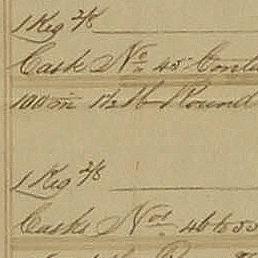 1 Keg 2/8
Cask No. 45 Conta
100 m 1½ lb Round
1 Keg 2/8
Casks Nos. 46 to 50